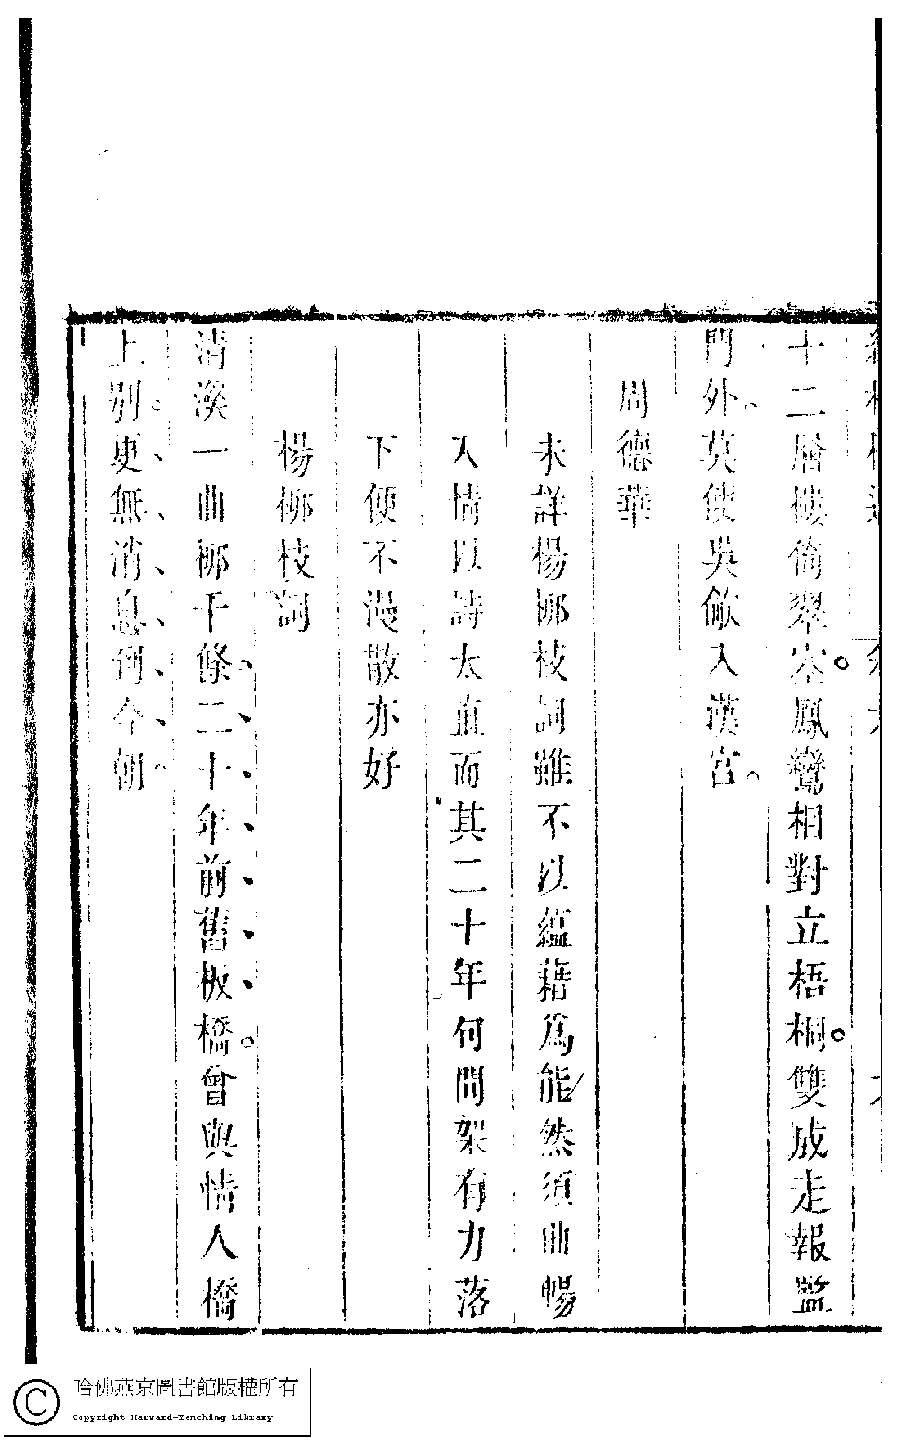 十二層樓倚翠空鳳鸞相對立梧桐雙成走報監
門外莫使吳歈入漢宮
周德華
未詳楊柳枝詞雖不以蘊藉為能然須曲暢
人情以詩太直而其二十年何間架有力落
下便不漫散亦好
楊柳枝詞
清溪一曲柳千條二十年前舊板橋曾與情人橋
上別更無消息到今朝
哈佛燕京圖書館版權所有
Copyright Harvard-Yenching Library